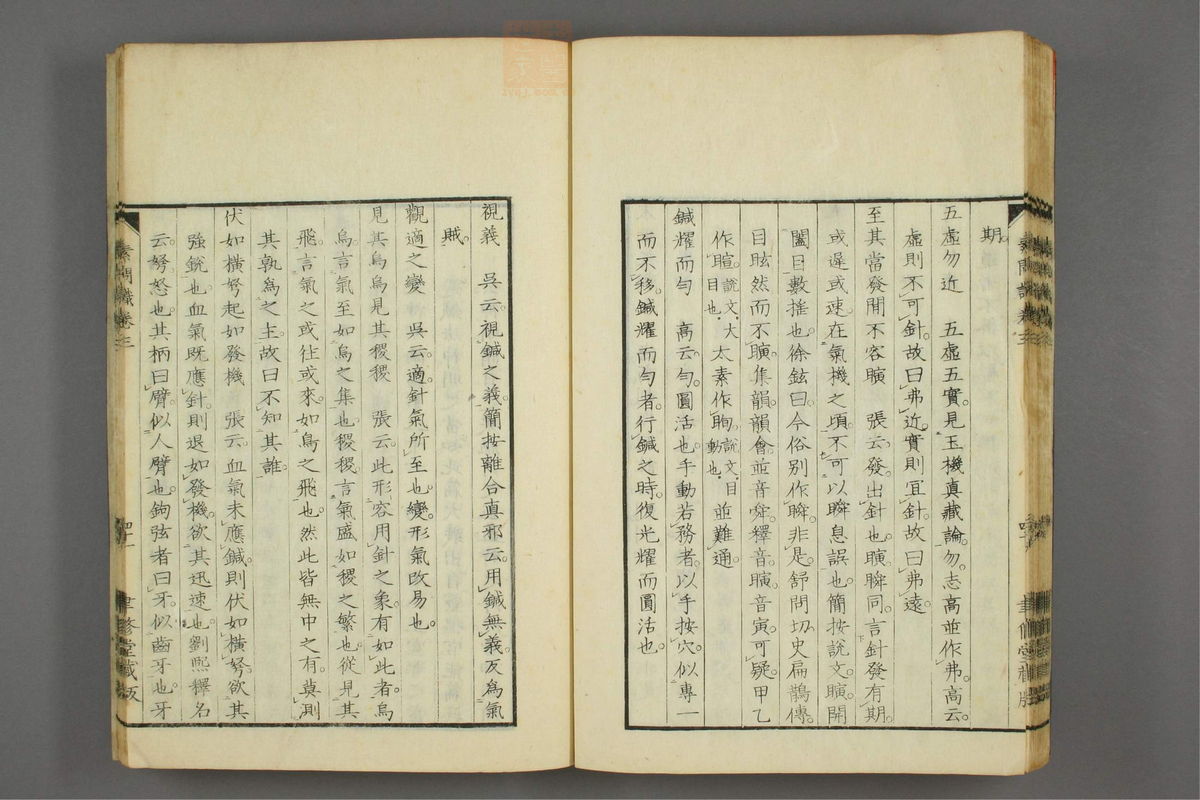 期。
五虛勿近　五虛五實。見玉機真藏論。勿志高並作弗。高云。
虛則不可針。故曰弗近。實則宜針。故曰弗遠。
至其當發。間不容瞚　張云。發。出針也。瞚瞬同。言針發有期。
或遲或速。在氣機之頃。不可以瞬息誤也。簡按說文。瞚。開
闔目數搖也。徐鉉曰。今俗別作瞬非是。舒問切。史扁鵲傳。
目眩然而不瞚。集韻。韻會。並音舜。釋音。瞚。音寅。可疑。甲乙
作瞚。說文。大目也。太素作眴。說文。目動也。並難通。
鍼耀而勻　高云。勻。圓活也。手動若務者。以手按穴。似專一
而不移。鍼耀而勻者。行鍼之時。復光耀而圓活也。
視義　吳云。視鍼之義。簡按離合真邪云。用鍼無義。反為氣
賊。
觀適之變　吳云。適。針氣所至也。變。形氣改易也。
見其烏烏見其稷稷　張云。此形容用針之象。有如此者。烏
烏。言氣至如烏之集也。稷稷。言氣盛如稷之繁也。從見其
飛。言氣之或往或來。如烏之飛也。然此皆無中之有。莫測
其孰為之主。故曰不知其誰。
伏如橫弩起如發機　張云。血氣未應鍼。則伏如橫弩。欲其
強銳也。血氣既應針。則退如發機。欲其迅速也。劉熙釋名
云。弩。怒也。其柄曰臂。似人臂也。鉤弦者曰牙。似齒牙也。牙
素問識卷三
四十一
聿修堂藏版